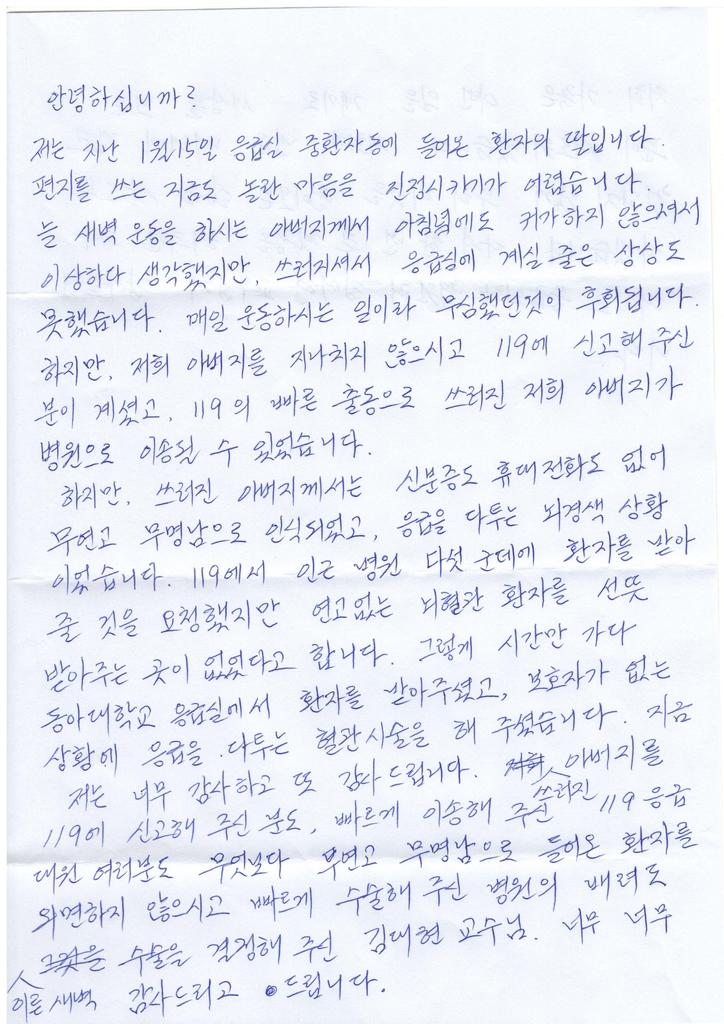 안녕하십니까?
저는 지난 1월15일 응급실 중환자동에 들어온 환자의 딸입니다.
편지를 쓰는 지금도 놀란 마음을 진정시키기가 어렵습니다.
늘 새벽 운동을 하시는 아버지께서 아침녘에도 귀가하지 않으셔서
이상하다 생각했지만, 쓰러지셔서 응급실에 계실 줄은 상상도
못했습니다. 매일 운동하시는 일이라 무심했던것이 후회됩니다.
하지만, 저희 아버지를 지나치지 않으시고 119에 신고해 주신
분이 계셨고, 119의 빠른 출동으로 쓰러진 저희 아버지가
병원으로 이송될 수 있었습니다.
하지만, 쓰러진 아버지께서는 신분증도 휴대전화도 없어
무연고 무명남으로 인식되었고, 응급을 다투는 뇌경색 상황
이었습니다. 119에서 인근 병원 다섯 군데에 환자를 받아
줄 것을 요청했지만 연고없는 뇌혈관 환자를 선뜻
받아주는 곳이 없었다고 합니다. 그렇게 시간만 가다
동아대학교 응급실에서 환자를 받아주셨고, 보호자가 없는
상황에 응급을 다투는 혈관시술을 해 주셨습니다. 지금
저는 너무 감사하고 또 감사드립니다. 쓰러진 아버지를
119에 신고해 주신 분도, 빠르게 이송해 주신 119 응급
대원 여러분도 무엇보다 무연고 무명남으로 들어온 환자를
외면하지 않으시고 빠르게 수술해 주신 병원의 배려도
이른 새벽 수술을 결정해 주신 김대현 교수님. 너무 너무
감사드리고 드립니다.